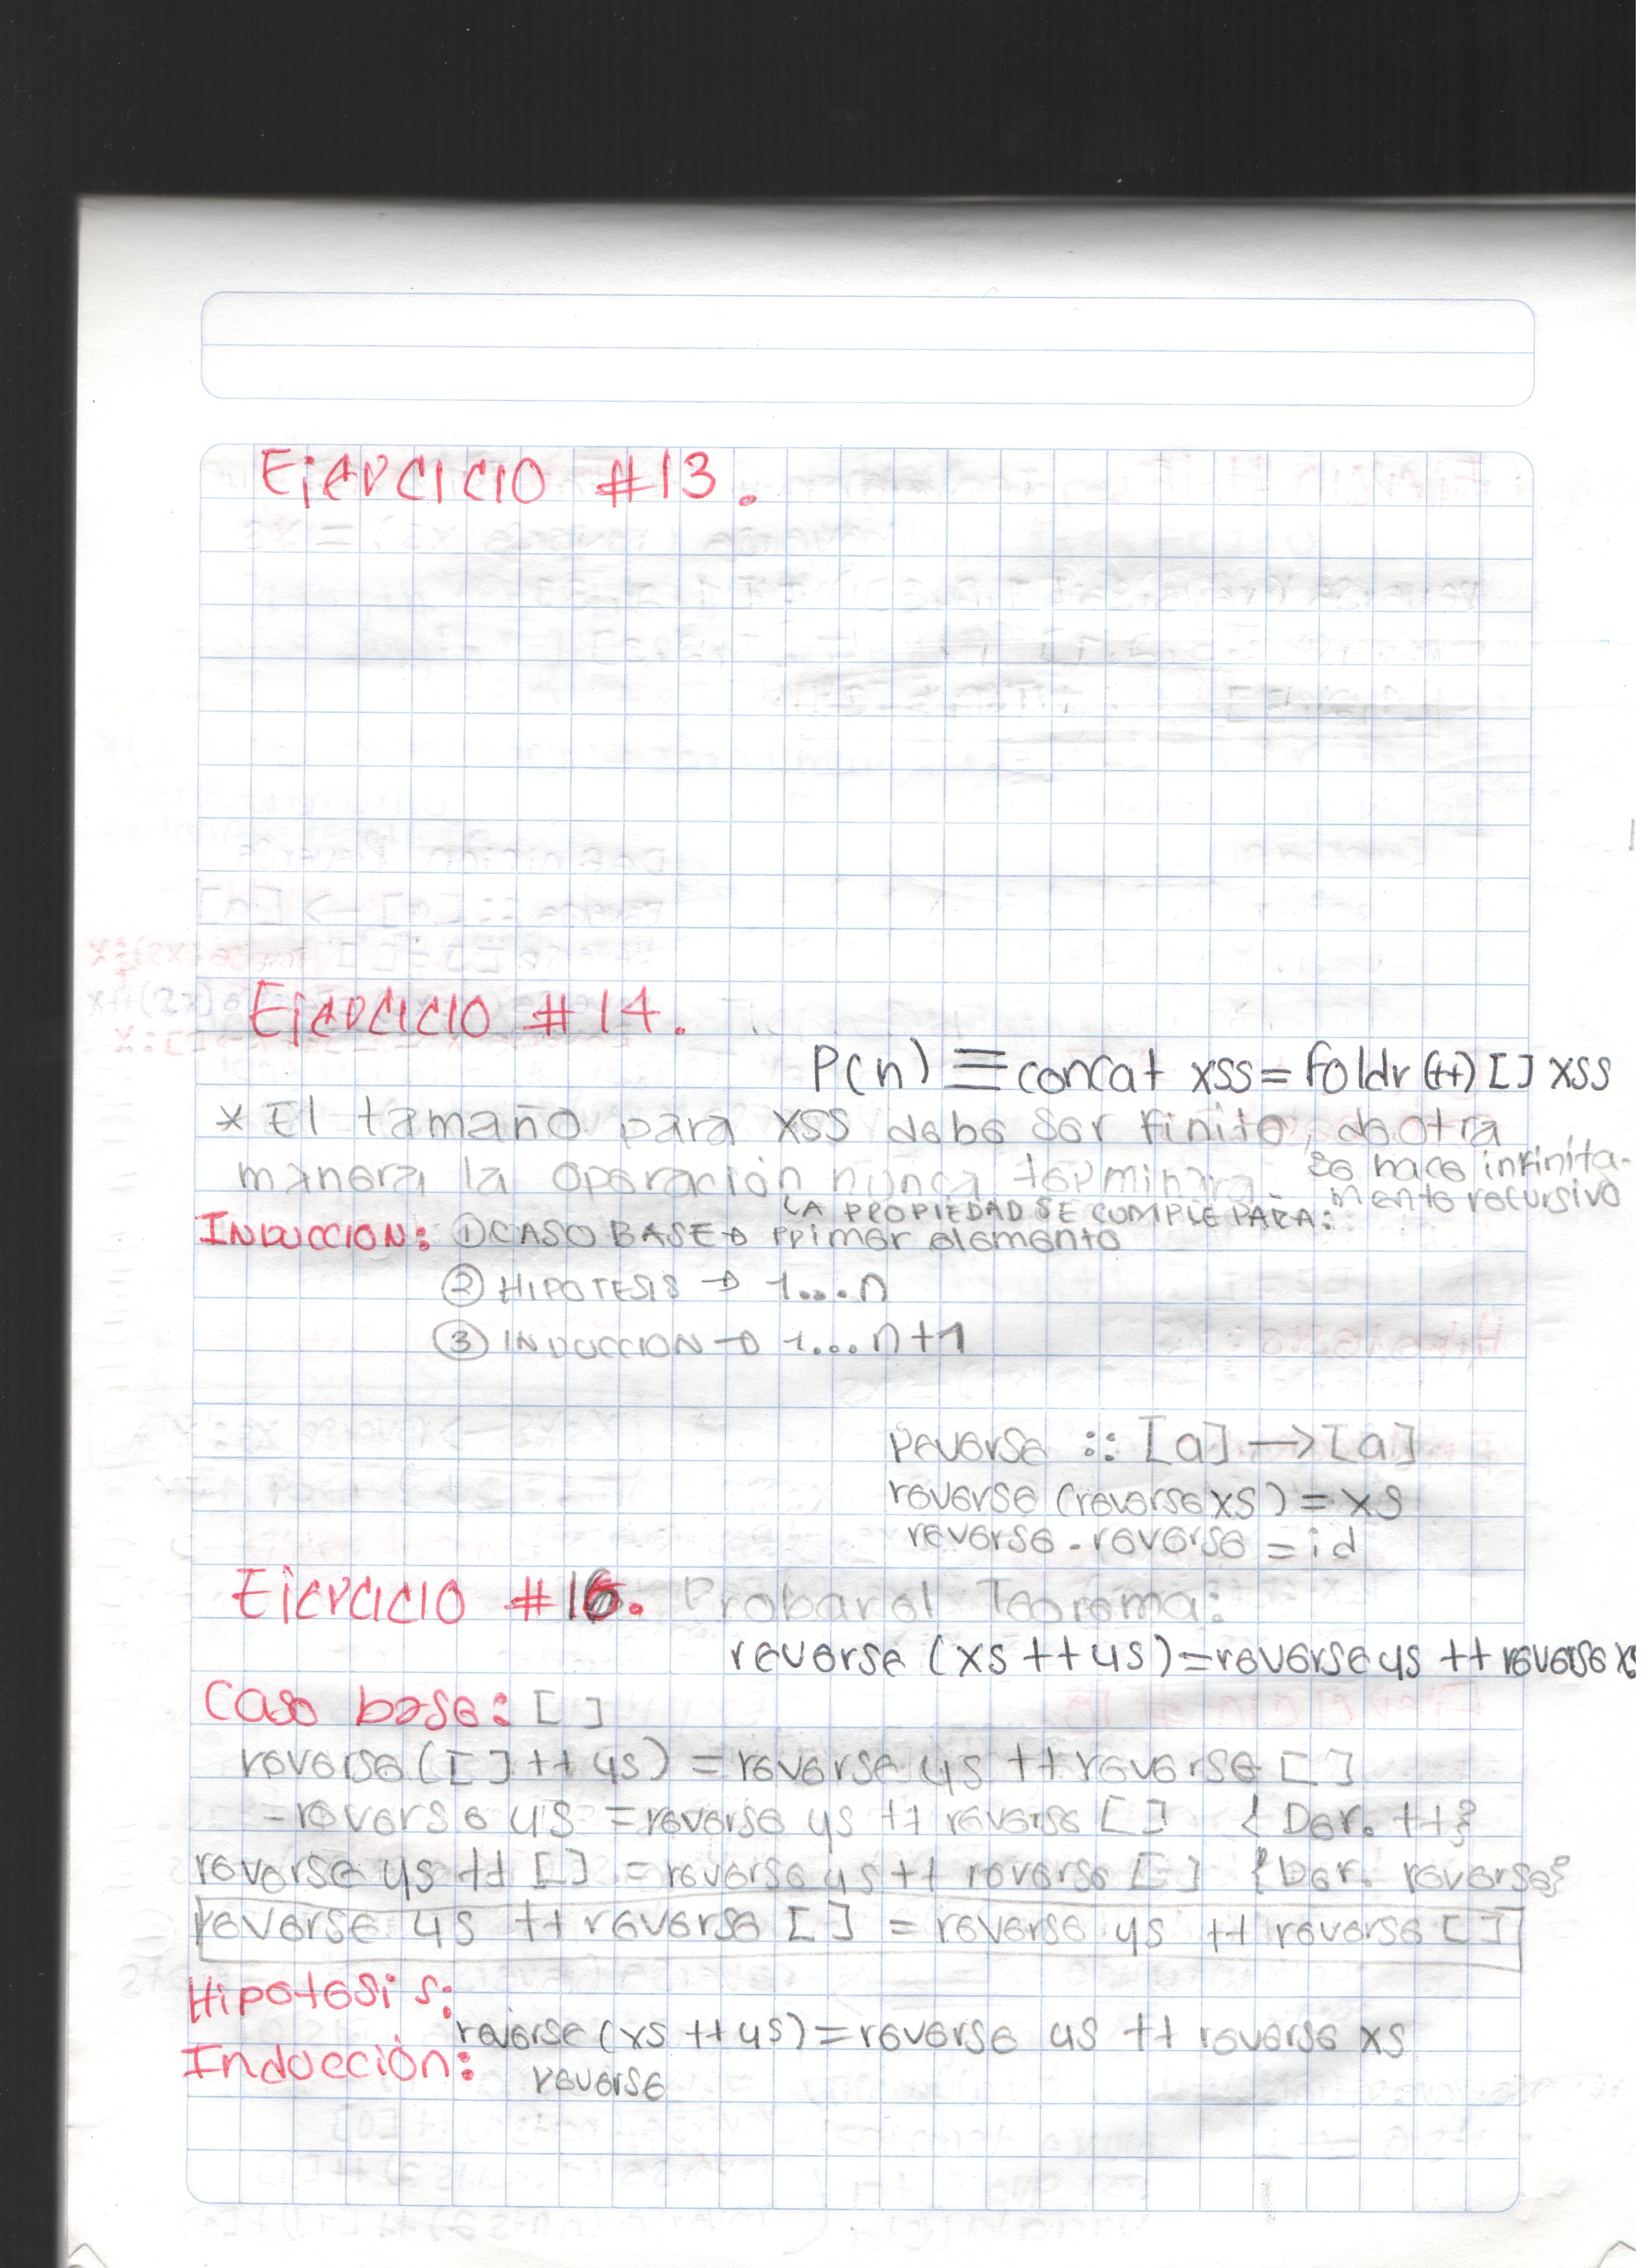 Ejercicio #13.
Ejercicio #14.
P(n) ≡ concat xss = foldr (++) [] xss
* El tamaño para xss debe ser finito, de otra
manera la operación nunca terminara se hace infinita-
mente recursivo
LA PROPIEDAD SE CUMPLE PARA:
INDUCCION: ① CASO BASE → primer elemento
② HIPOTESIS → 1...n
③ INDUCCION → 1...n+1
Reverse :: [a] → [a]
reverse (reverse xs) = xs
reverse . reverse = id
Ejercicio #16. Probar el Teorema:
reverse (xs ++ ys) = reverse ys ++ reverse xs
Caso base: []
reverse ([] ++ ys) = reverse ys ++ reverse []
- reverse ys = reverse ys ++ reverse [] {Der. ++}
reverse ys ++ [] = reverse ys ++ reverse [] {Der. reverse}
reverse ys ++ reverse [] = reverse ys ++ reverse []
Hipotesis:
reverse (xs ++ ys) = reverse ys ++ reverse xs
Inducción: reverse